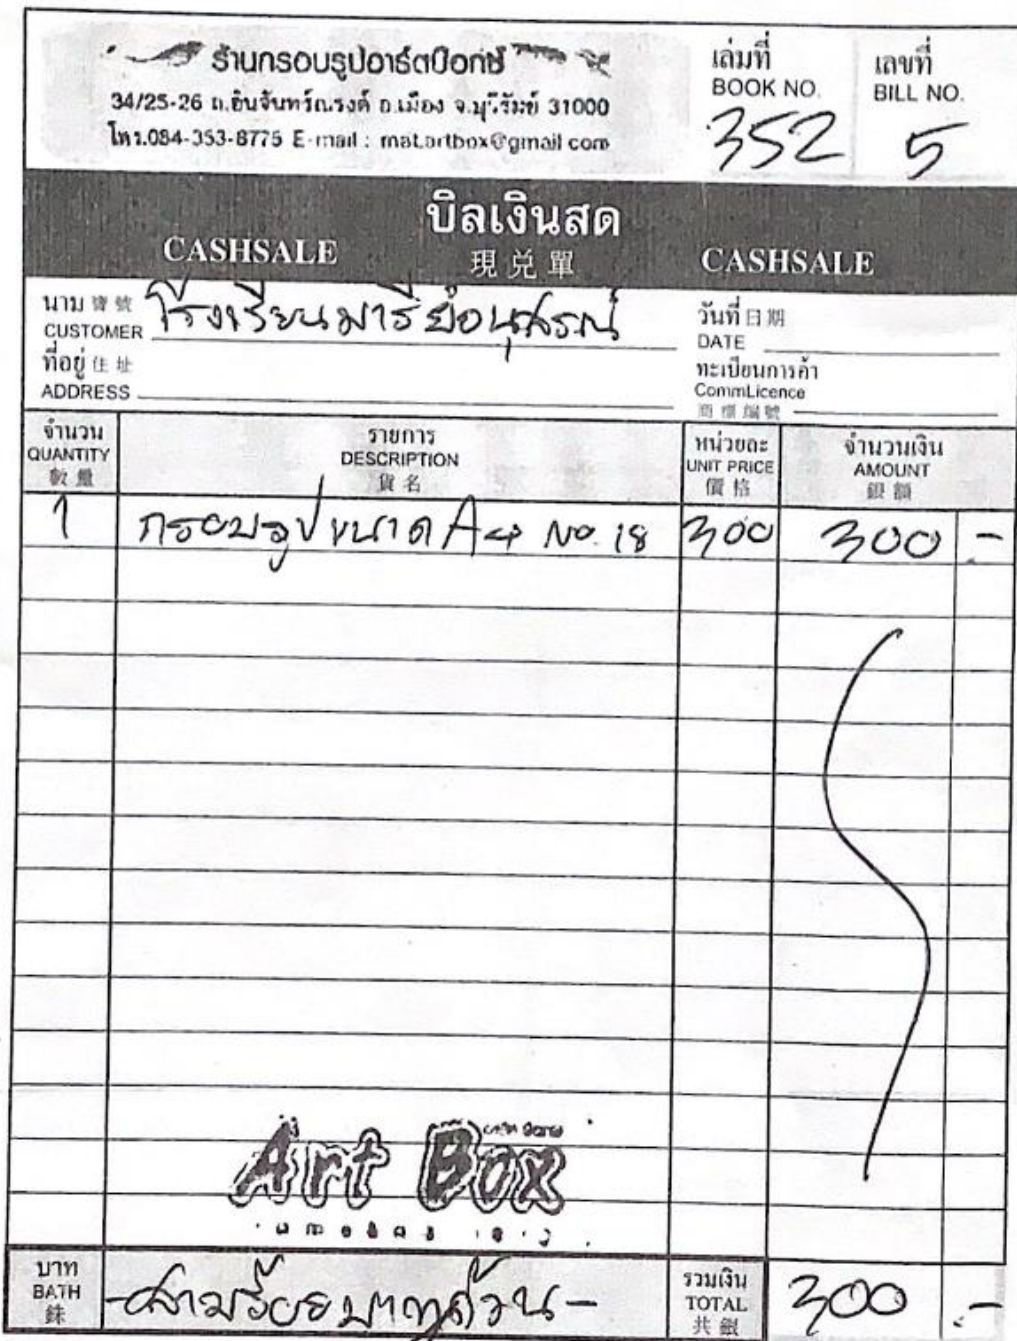 ร้านกรอบรูปอาร์ตบ๊อกซ์
34/25-26 ถ.อินจันทร์ณรงค์ อ.เมือง จ.บุรีรัมย์ 31000
โทร.084-353-8775 E-mail : mat.artbox@gmail com
เล่มที่
BOOK NO.
352
เลขที่
BILL NO.
5
บิลเงินสด
CASHSALE 現兌單 CASHSALE
นาม 寶號
CUSTOMER โรงเรียนมารีย์อนุสรณ์
ที่อยู่ 住址
ADDRESS
วันที่ 日期
DATE
ทะเบียนการค้า
CommLicence
商標編號
จำนวน
QUANTITY
數量
รายการ
DESCRIPTION
貨名
หน่วยละ
UNIT PRICE
價格
จำนวนเงิน
AMOUNT
銀額
1 กรอบรูปขนาด A4 No. 18 300 300 -
Art Box
บาท
BATH
銖
-สามร้อยบาทถ้วน-
รวมเงิน
TOTAL
共銀
300 .-